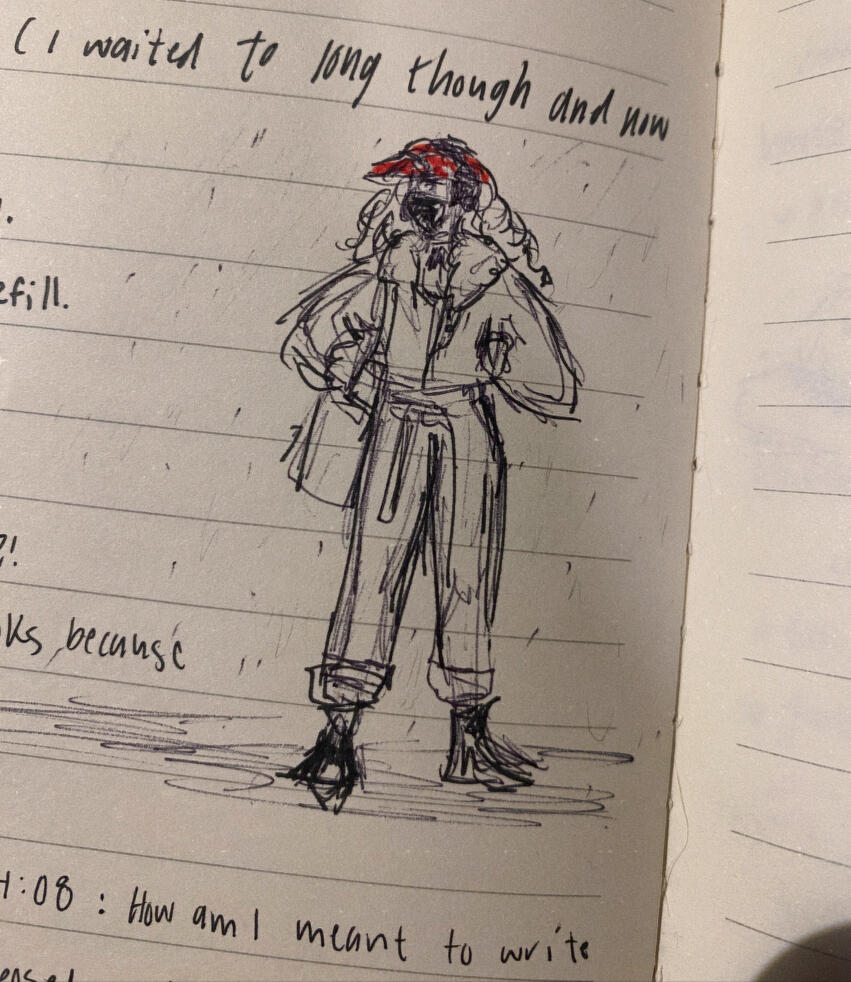 (I waited to long though and now
efill.
?!
ks because
:08 : How am I meant to write